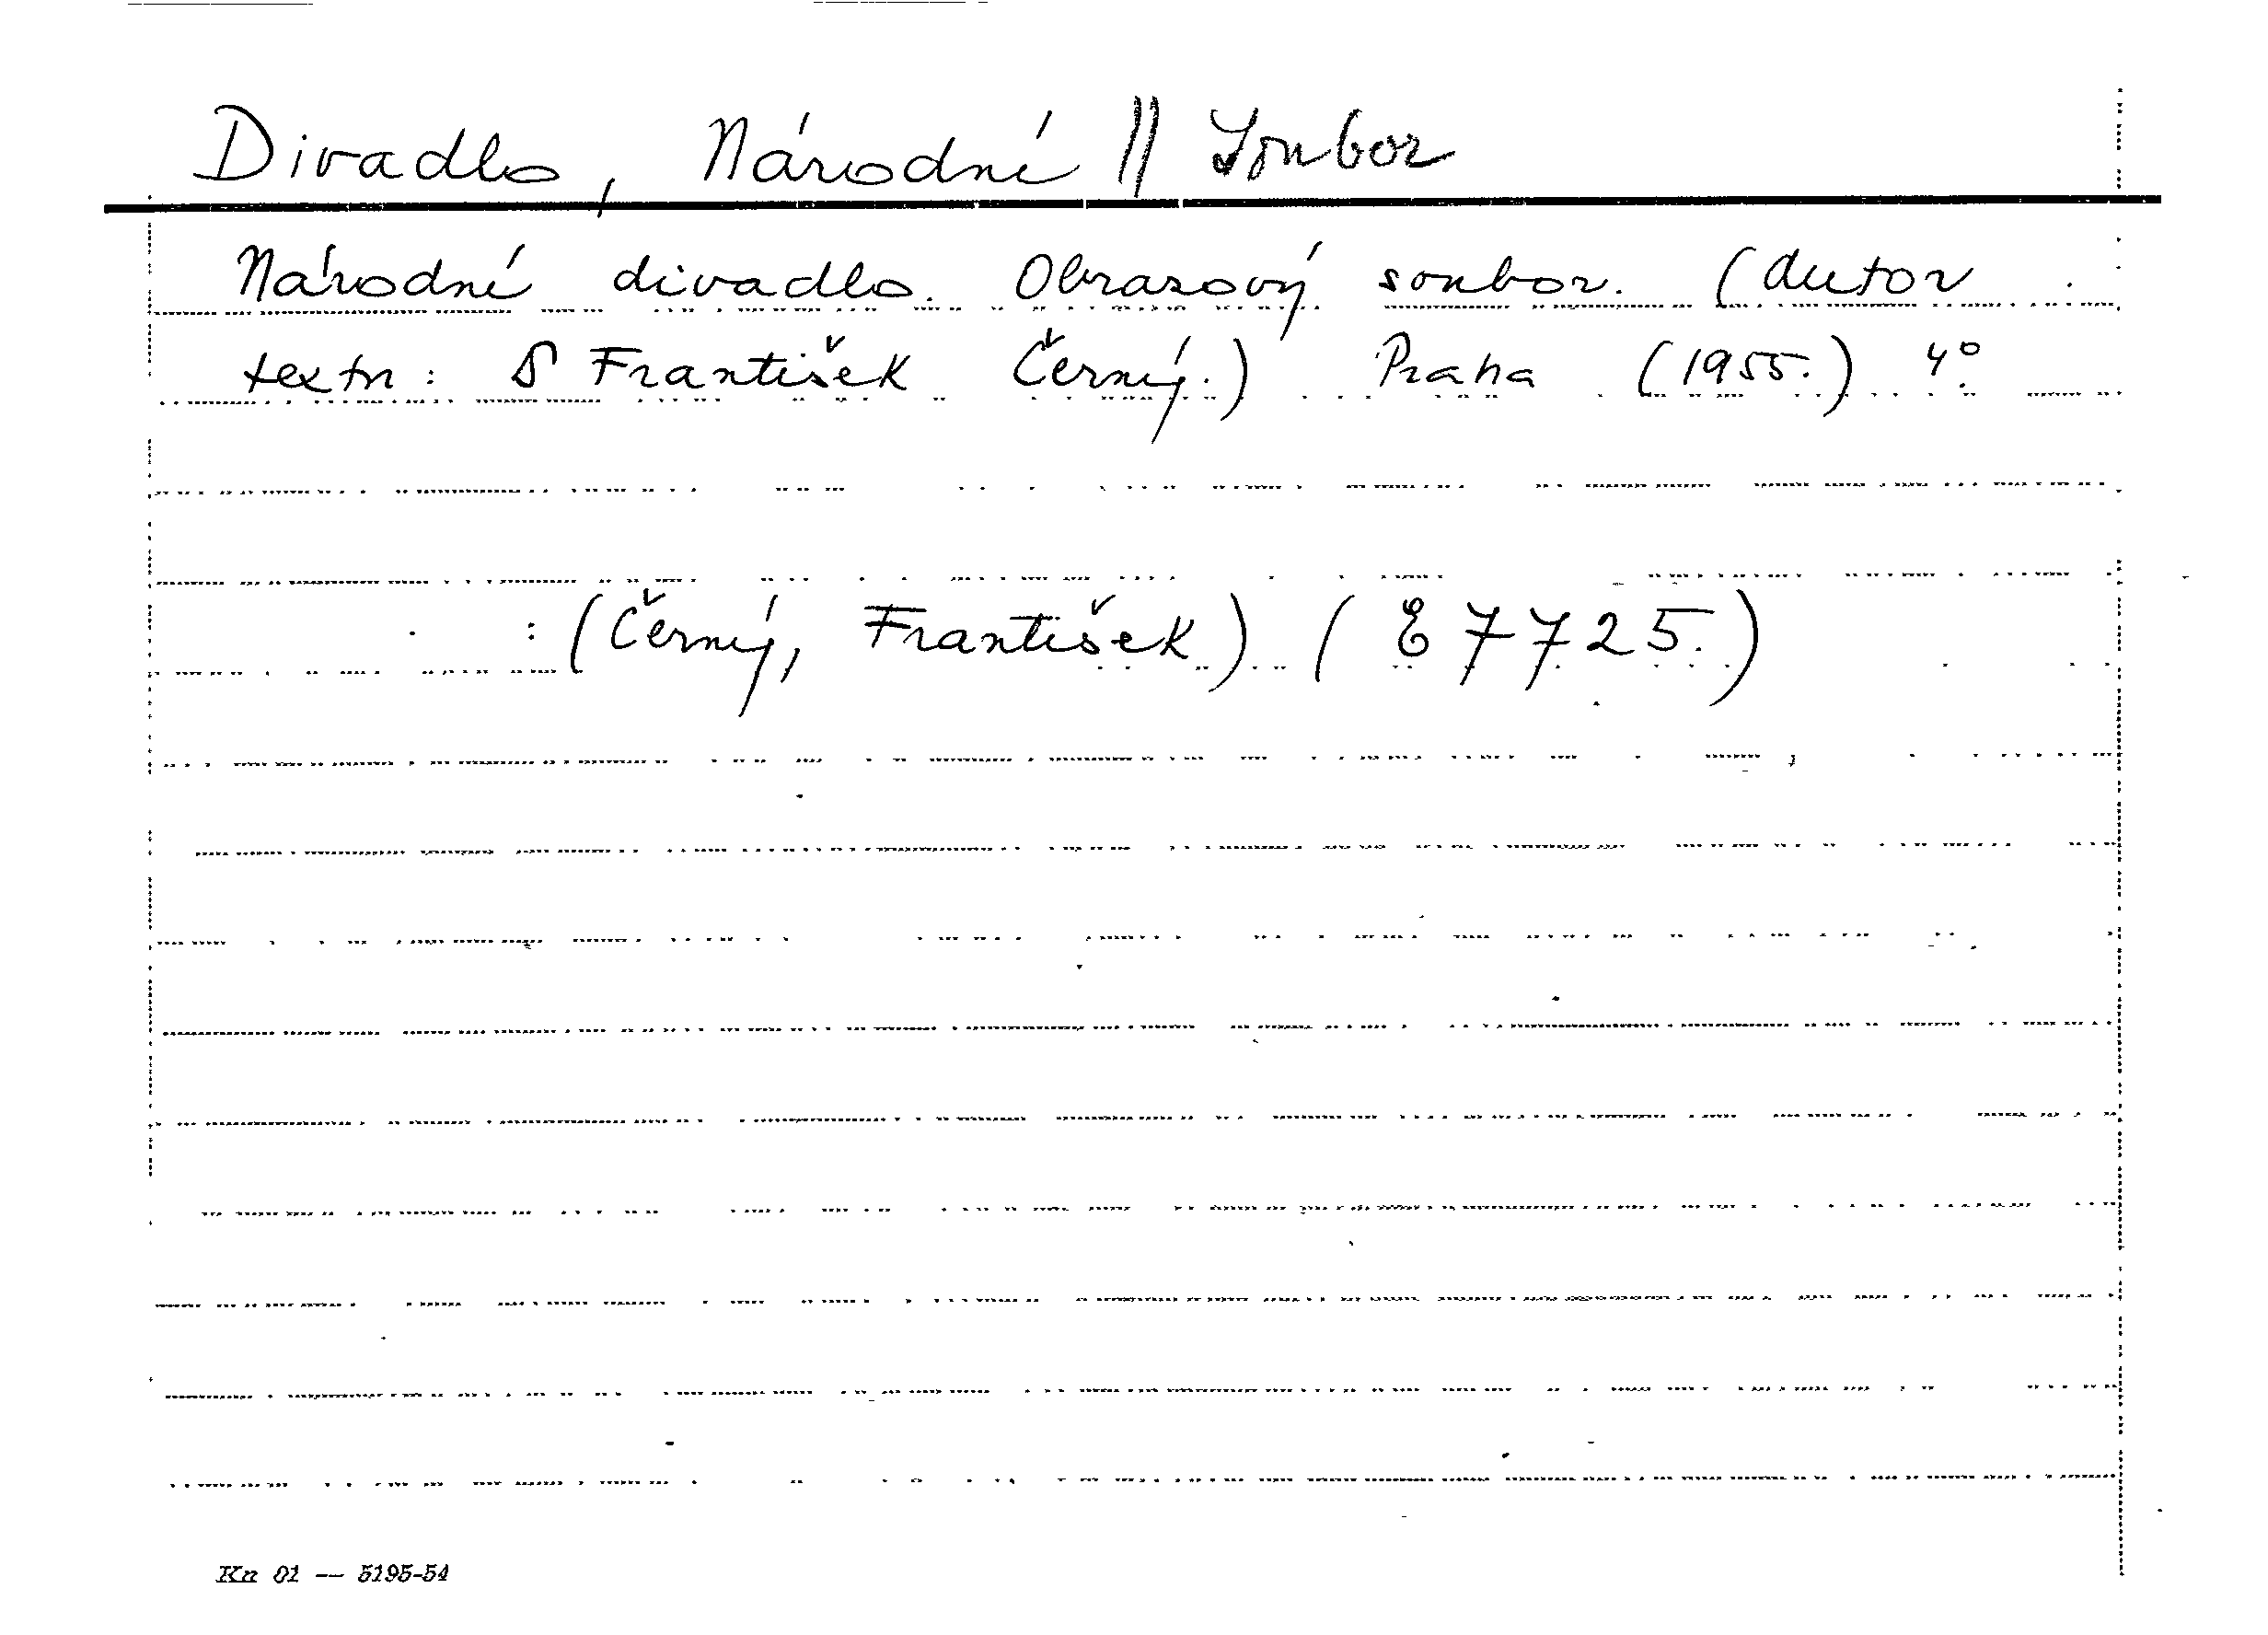 Divadlo, Národné || Soubor
Národné divadlo. Obrasový soubor. (Autor
textu: František Černý.) Praha (1955.) 4°.
: (Černý, František) (E 7725.)
Kn 01 — 5195-54